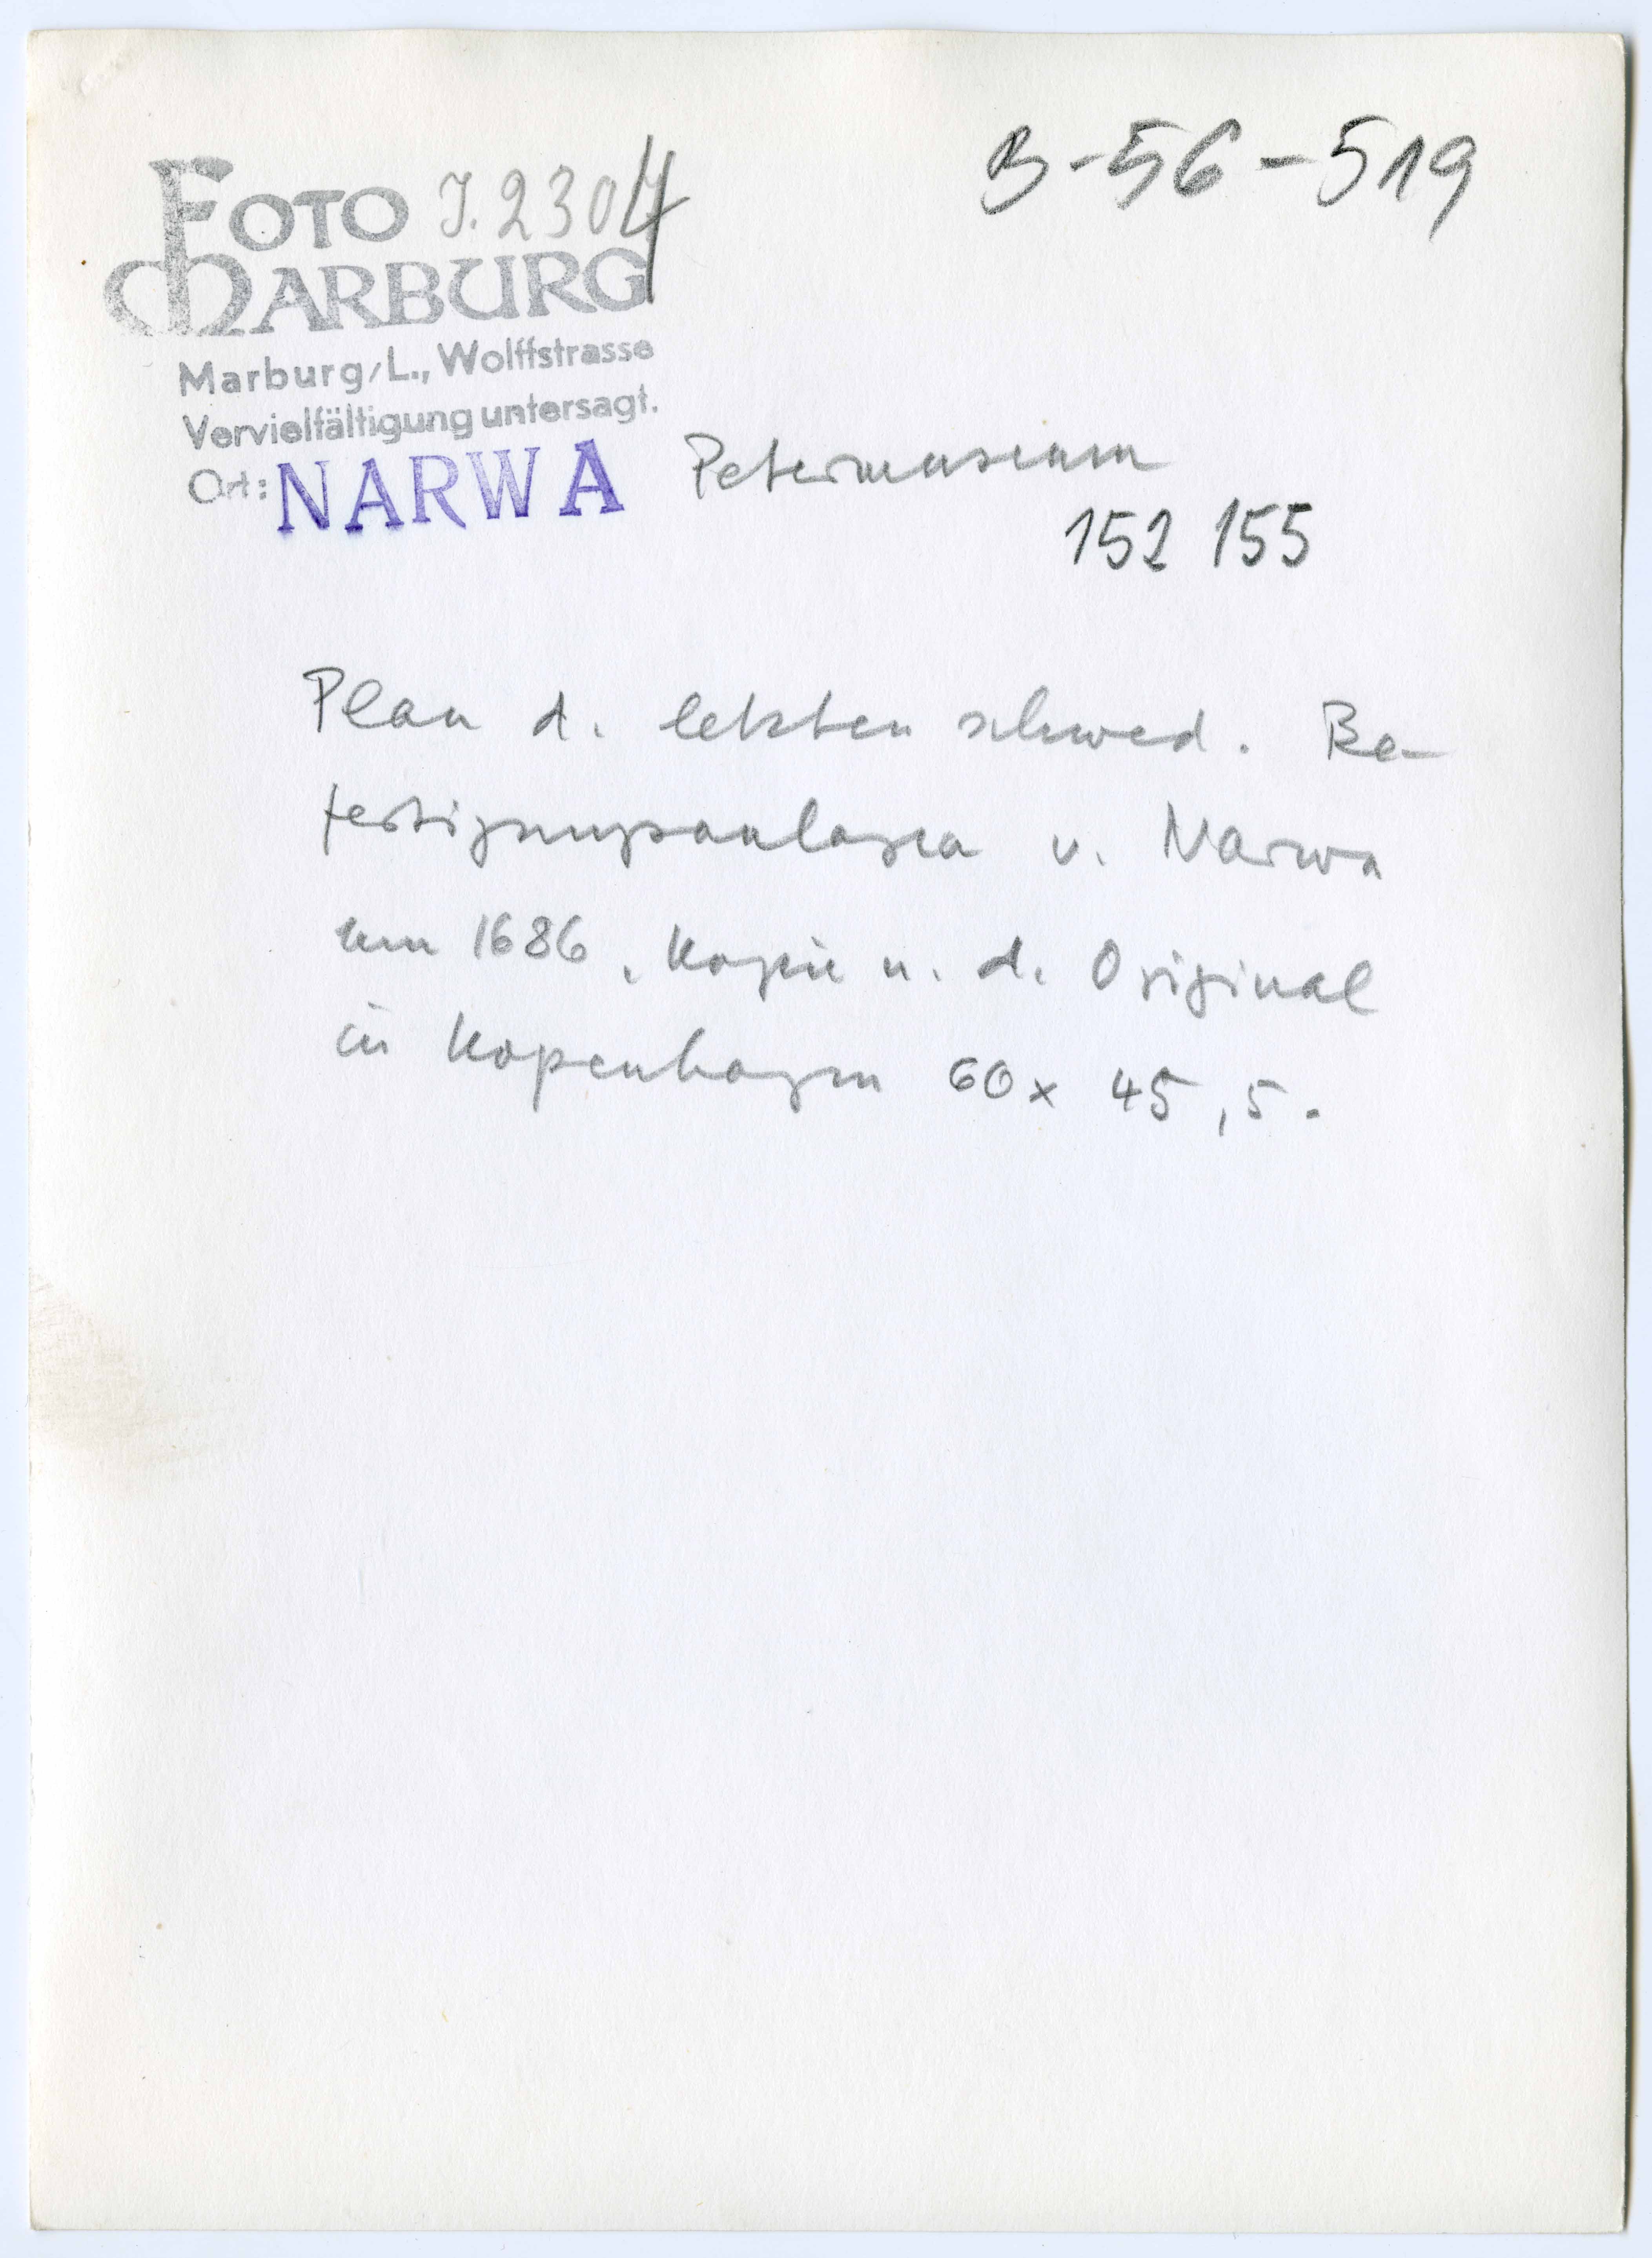 B-56-519
FOTO J.2304
MARBURG
Marburg/L., Wolffstrasse
Vervielfältigung untersagt.
Ort: NARWA Petermuseum
152 155
Plan d. letzten schwed. Be-
festigungsanlagen v. Narwa
um 1686. Kopie n. d. Original
in Kopenhagen 60 x 45,5.